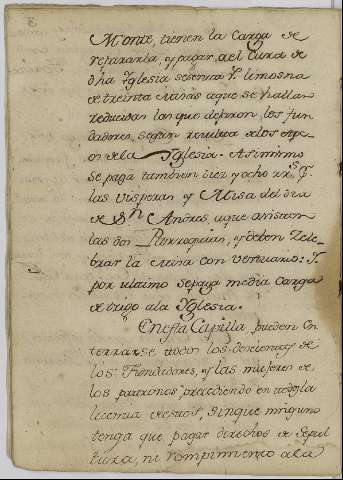 Monte, tienen la Carga de
repararla, y pagar al Cura de
dha Yglesia sesenta rs limosna
de treinta Misas a que se hallan
reducidas las que dejaron los fun
dadores, segun resulta de los Ape-
os de la Yglesia. Asimismo
se paga tambien diez y ocho rrs. Pr.
las visperas y Misa del dia
de Sn Andres, a que asisten
las dos Parroquias, y deben Zele-
brar la Misa con vestuario: Y
por ultimo se paga media Carga
de trigo a la Yglesia.
En esta Capilla pueden En
terrarse todos los descientes de
los Fundidores, y las mujeres de
los patronos, precediendo en todos la
licencia de estos, sin que ninguno
tenga que pagar derechos de Sepul
tura, ni rompimiento a la